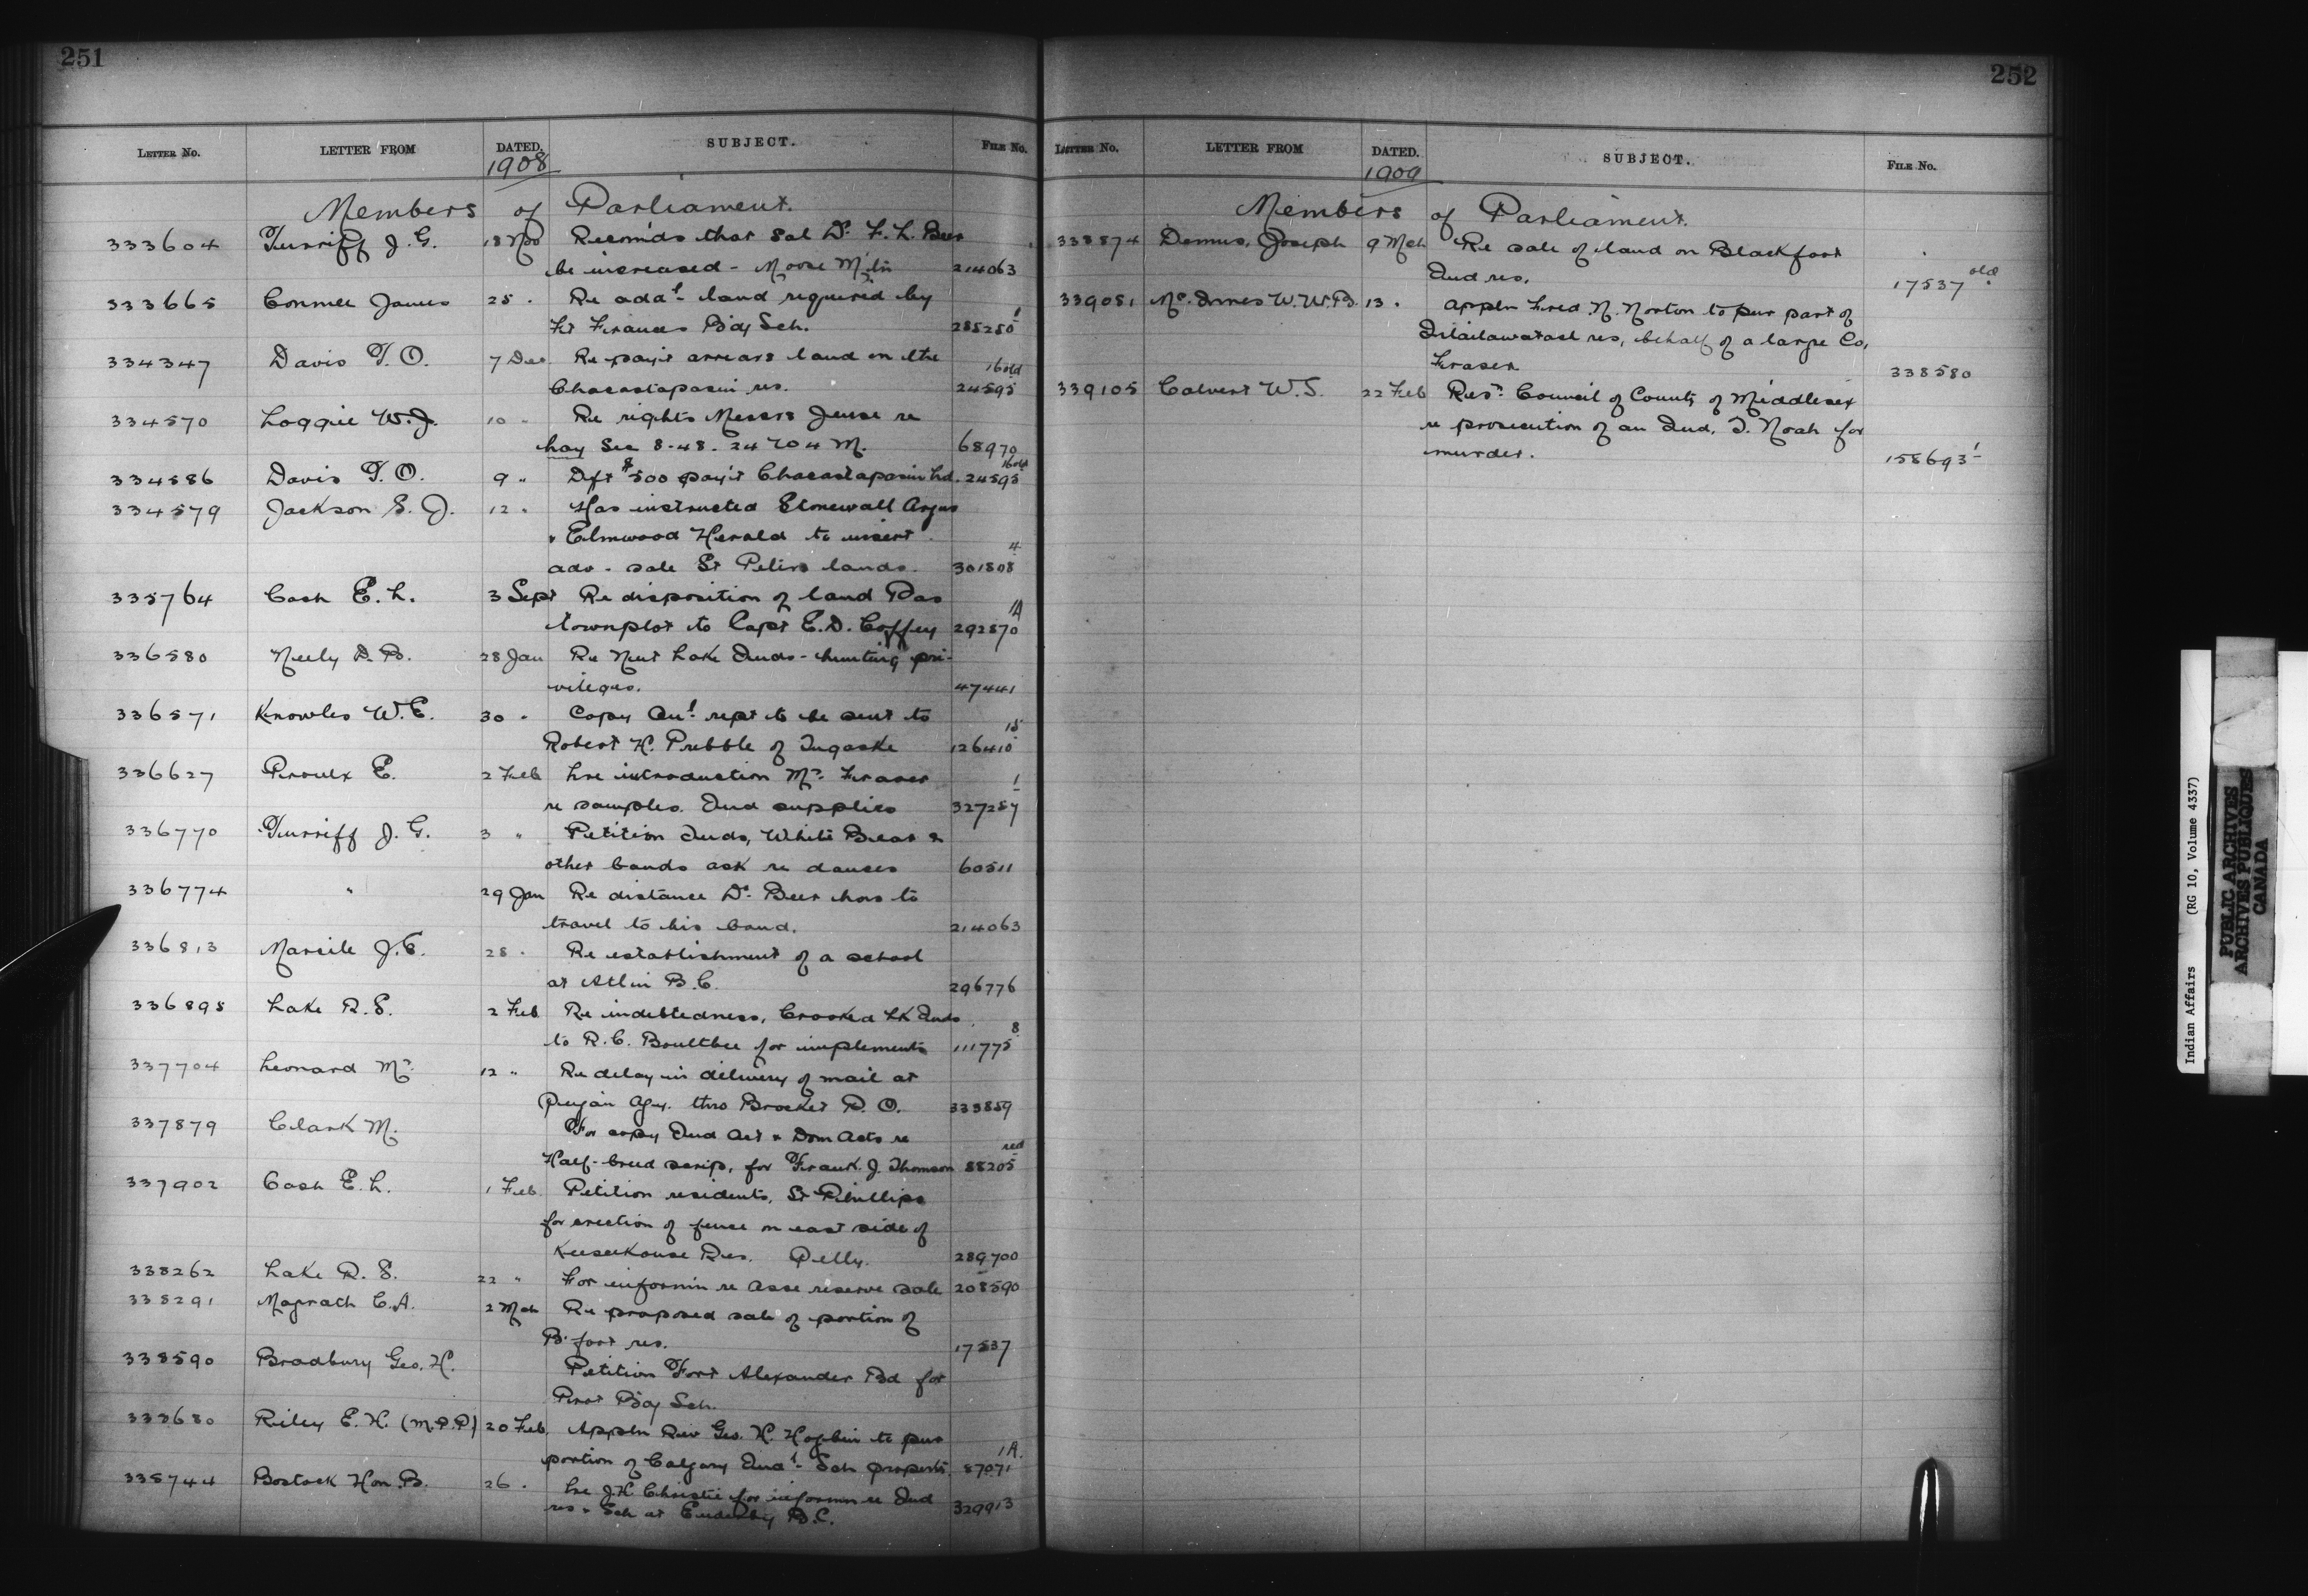 251
LETTER No. LETTER FROM DATED. SUBJECT. FILE No.
1908
Members of Parliament.
333604 Turriff J. G. 18 Nov Recom'ds that Sal Dr. F. L. Beer
be increased - Moose Mtn 214063
333665 Conmee James 25 " Re add'l land required by
Ft Frances B'dg Sch. 285280 1
334347 Davis T. O. 7 Dec Re pay't arrears land on the
Chacastapasin res. 24595 16 old
334570 Loggie W. J. 10 " Re rights Messrs Jense re
hay Sec 8-48-24 W 4 M. 68970
334586 Davis T. O. 9 " Dft $500 pay't Chacastapasin Ld. 24595 16 old
334579 Jackson S. J. 12 " Has instructed Stonewall Argus
& Elmwood Herald to insert
adv - sale St Peters lands. 301808 4
335764 Cash E. L. 3 Sept Re disposition of land Pas
townplot to Capt E. D. Coffey 292870 1A
336580 Neely D. B. 28 Jan Re Nut Lake Inds - hunting pri-
vileges. 47441
336571 Knowles W. E. 30 " Copy An'l rept to be sent to
Robert H. Prebble of Tugaske 126410 15
336627 Proulx E. 2 Feb Lre introduction Mr. Fraser
re samples. Ind supplies 327287 1
336770 Turriff J. G. 3 " Petition Inds, White Bear &
other bands ask re dances 60511
336774 " 29 Jan Re distance Dr. Beer has to
travel to his band. 214063
336813 Marcile J. E. 28 " Re establishment of a school
at Atlin B.C. 296776
336895 Lake R. S. 2 Feb Re indebtedness, Crooked Lk Inds
to R. C. Boultbee for implements 111775 8
337704 Leonard Mr. 12 " Re delay in delivery of mail at
Peigan Agy. thro Brocket P. O. 333859
337879 Clark M. For copy Ind Act & Dom Acts re
Half-breed scrip, for Frank. J. Thomson 88205 red
337902 Cash E. L. 1 Feb Petition residents, St Phillips
for erection of fence on east side of
Keeseekouse Res. Pelly. 289700
338262 Lake R. S. 22 " For informn re Asse reserve sale 208590
338291 Magrath C. A. 2 Mch Re proposed sale of portion of
B. foot res. 17537
338590 Bradbury Geo. H. Petition Fort Alexander Bd for
Prot B'dg Sch.
338680 Riley E. H. (M.P.P) 20 Feb. Appln Rev Geo. H. Hogbin to pur
portion of Calgary Ind'l Sch property. 87071 1A.
338744 Bostock Hon. B. 26 " Lre J. H. Christie for informn re Ind
res & Sch at Enderby B.C. 329913
252
LETTER No. LETTER FROM DATED. SUBJECT. FILE No.
1909
Members of Parliament.
338874 Demus, Joseph 9 Mch Re sale of land on Blackfoot
Ind res. 17537 old
339081 Mc. Innes W. W. B. 13 " Appln Fred. N. Norton to pur part of
res, behalf of a large Co,
Fraser 338580
339105 Calvert W. S. 22 Feb Resn Council of County of Middlesex
re prosecution of an Ind, I. Noah for
murder. 158693 1
Indian Affairs (RG 10, Volume 4337)
PUBLIC ARCHIVES
ARCHIVES PUBLIQUES
CANADA